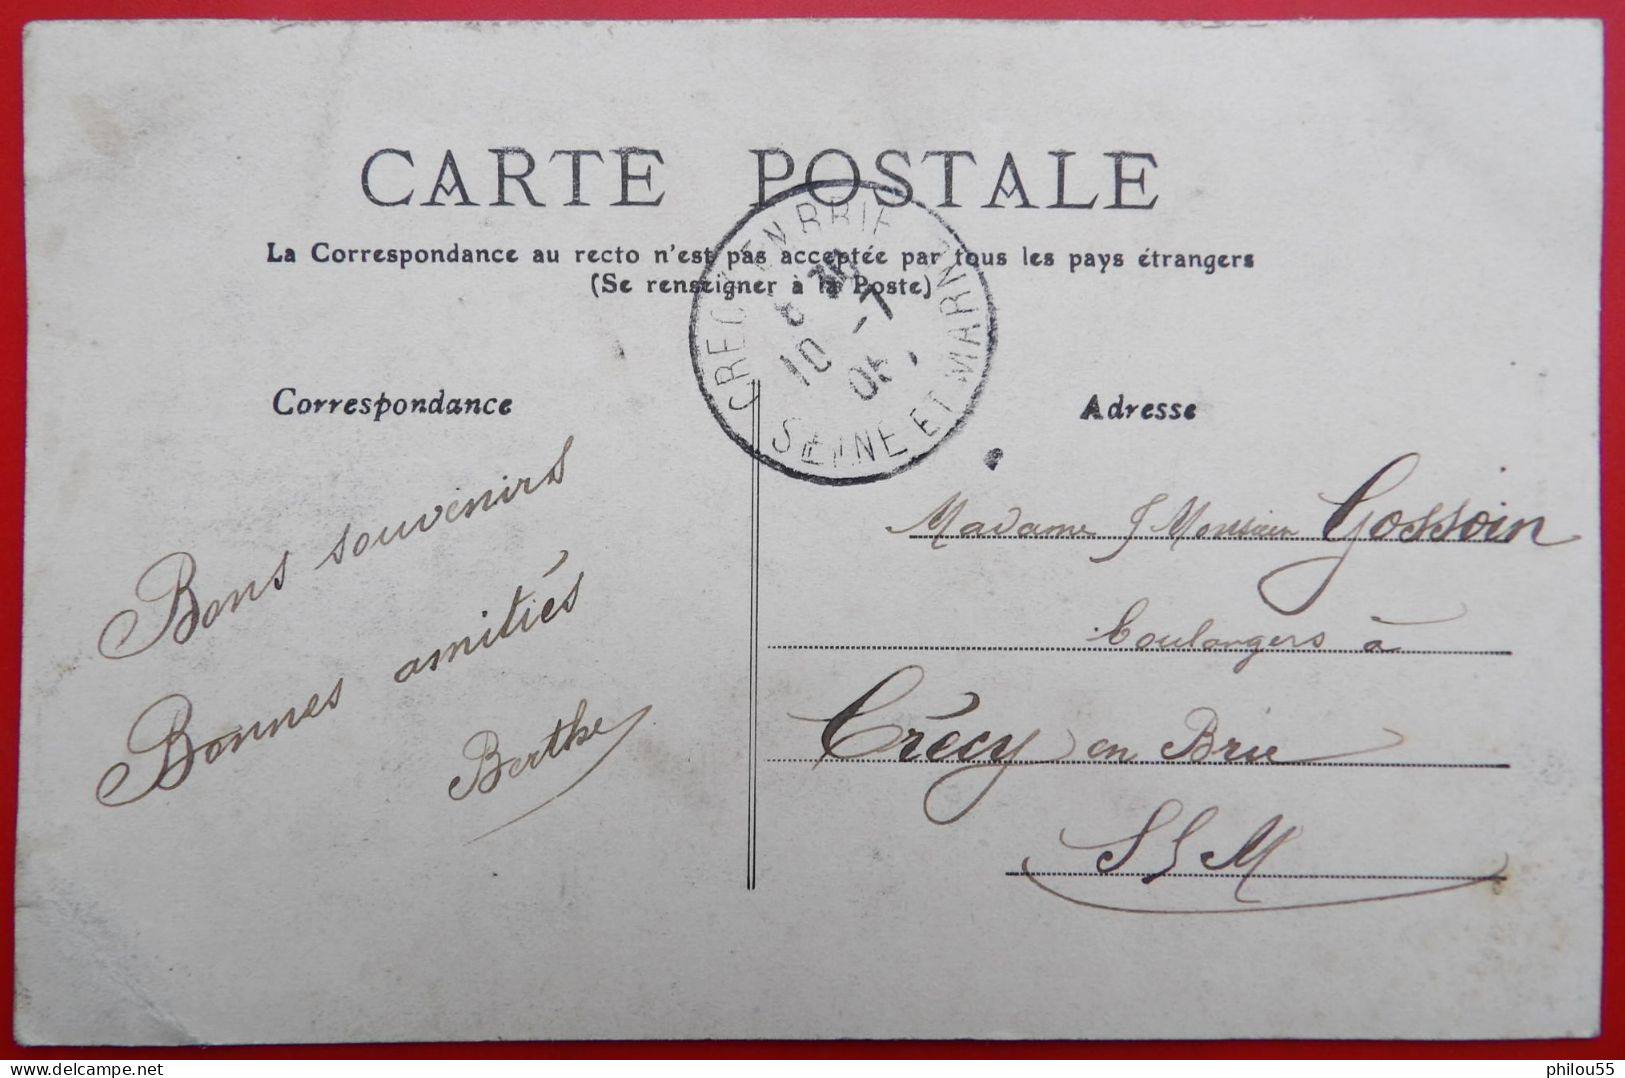 CARTE POSTALE
La Correspondance au recto n'est pas acceptée par tous les pays étrangers
(Se renseigner à la Poste)
CRECY EN BRIE
10 -7
SEINE ET MARNE
Correspondance
Bons souvenirs
Bonnes amitiés
Berthe
Adresse
Madame & Monsieur Gossoin
boulangers à
Crécy en Brie
S & M
philou55